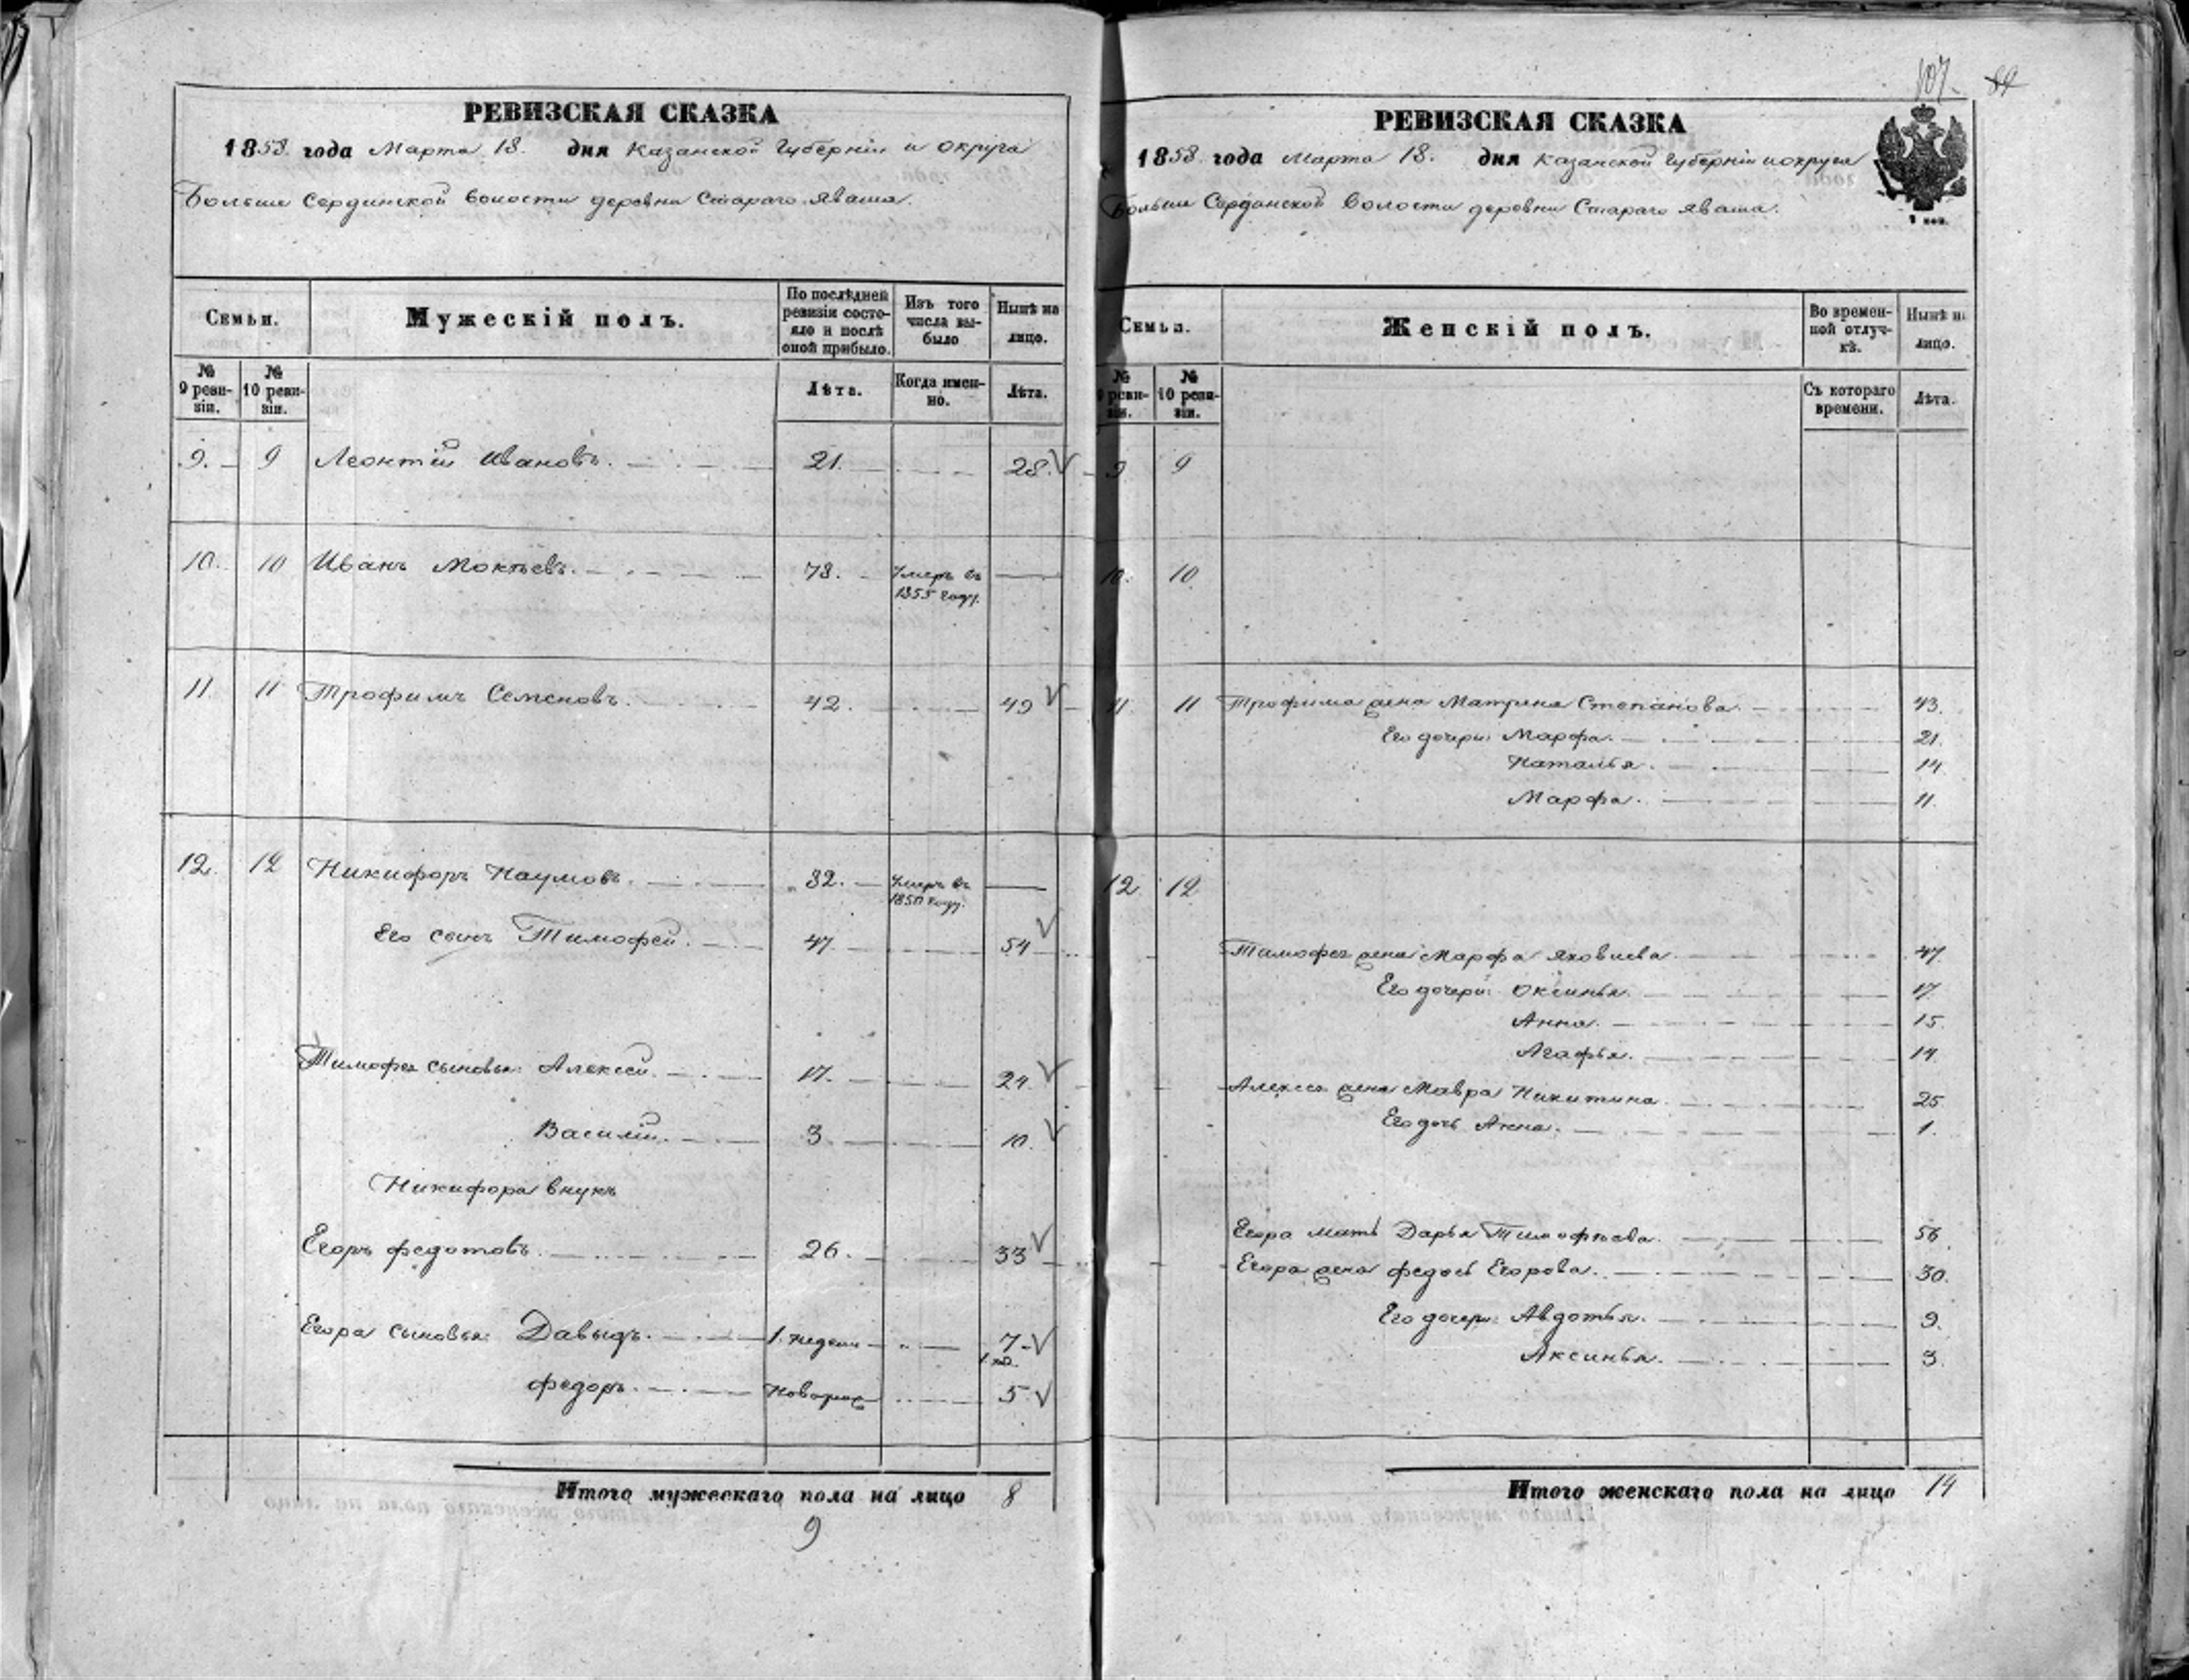 107. 84
РЕВИЗСКАЯ СКАЗКА
1858. года Марта 18. дня Казанской Губерніи и округа
Больше Сердинской волости деревни Стараго Яваша.
Семьи.
Мужескій полъ.
По послѣдней ревизіи состояло и послѣ оной прибыло.
Изъ того числа выбыло
Нынѣ на лицо.
№ 9 ревизіи.
№ 10 ревизіи.
Лѣта.
Когда именно.
Лѣта.
9. 9 Леонтій Ивановъ. 21. 28.
10. 10 Иванъ Мокѣевъ. 78. Умеръ въ 1855 году.
11. 11 Трофимъ Семеновъ. 42. 49
12. 12 Никифоръ Наумовъ. 82. Умеръ въ 1850 году.
Его сынъ Тимофей. 47. 54
Тимофея сыновья: Алексей. 17. 24.
Василій. 3 10.
Никифора внукъ
Егоръ Федотовъ. 26. 33
Егора сыновья: Давыдъ. 1. недели 7
Федоръ. новорож 5
Итого мужескаго пола на лицо 8
9
РЕВИЗСКАЯ СКАЗКА
1858 года Марта 18. дня Казанской Губерніи и округа
Больше Сердинской Волости деревни Стараго Яваша.
1 коп.
Семьи.
Женскій полъ.
Во временной отлучкѣ.
Нынѣ на лицо.
№ 9 ревизіи.
№ 10 ревизіи.
Съ котораго времени.
Лѣта.
9 9
10. 10
11. 11 Трофима жена Матрена Степанова 43.
Его дочери: Марфа. 21.
Наталья. 14
Марфа. 11.
12. 12
Тимофея жена Марфа Яковлева 47
Его дочери: Оксинья. 17.
Анна. 15.
Агафья. 14
Алексея жена Мавра Никитина. 25
Его дочь Анна. 1.
Егора мать Дарья Тимофѣева. 56.
Егора жена Федосья Егорова. 30.
Его дочери: Авдотья. 9.
Аксинья. 3.
Итого женскаго пола на лицо 14